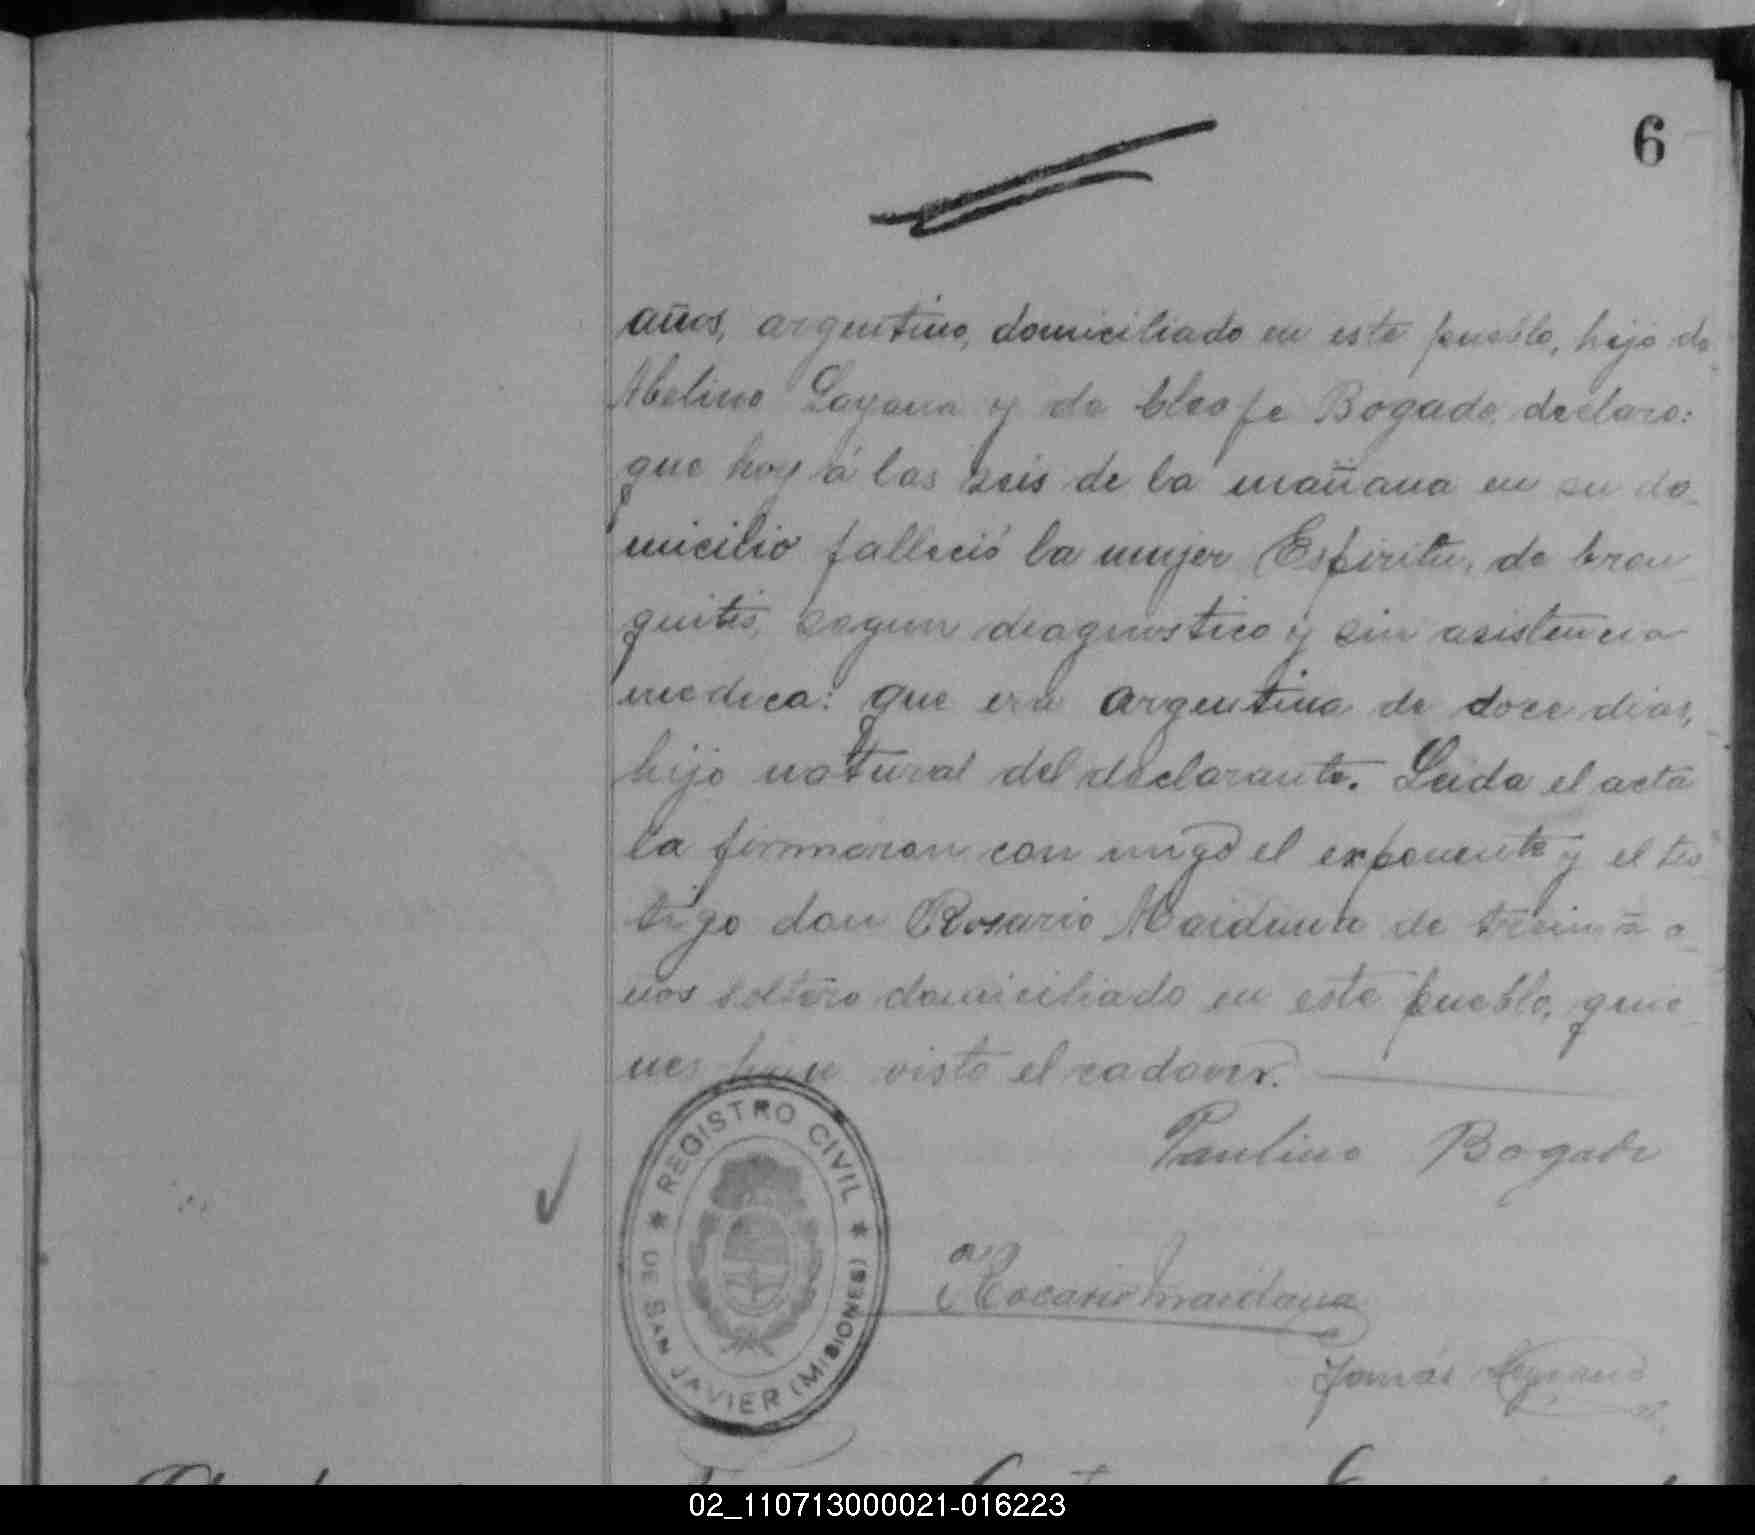 6
años, argentino, domiciliado en este pueblo, hijo de
Abelino Layana y de Cleofe Bogado, declaro:
que hoy á las seis de la mañana en su do
micilio falleció la mujer Espiritu, de bron
quitis, segun diagnostico y sin asistencia
medica: que era argentina de doce dias,
hijo natural del declarante. Leida el acta
la firmaron con migo el exponente y el tes
tigo don Rosario Maidana de treinta a
nos soltero domiciliado en este pueblo, quie
nes han visto el cadaver.
Paulino Bogado
Rocario Maidana
Tomás
REGISTRO CIVIL
DE SAN JAVIER (MISIONES)
02_110713000021-016223